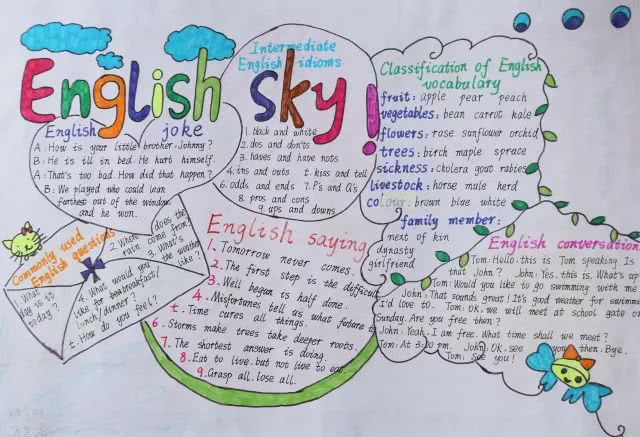 English sky!
English joke
A: How is your little brother, Johnny?
B: He is ill in bed. He hurt himself.
A: That's too bad. How did that happen?
B: We played who could lean
farthest out of the window
and he won.
Intermediate
English idioms
1. black and white
2. dos and don'ts
3. haves and have nots
4. ins and outs t. kiss and tell
6. odds and ends 7. P's and Q's
8. pros and cons
9. ups and downs
Classification of English
vocabulary
fruit: apple pear peach
vegetables: bean carrot kale
flowers: rose sunflower orchid
trees: birch maple spruce
sickness: cholera gout rabies
livestock: horse mule herd
colour: brown blue white
family member:
next of kin
dynasty
girlfriend
Commonly used
English questions
1. What
day is it
today
2. Where does the
rain come from?
3. What's
the weather
like?
4. What would you
like for breakfast/
lunch/dinner?
t. How do you feel?
English saying
1. Tomorrow never comes.
2. The first step is the difficult
3. Well begun is half done.
4. Misfortunes tell us what future is
t. Time cures all things.
6. Storms make trees take deeper roots.
7. The shortest answer is doing.
8. Eat to live. but not live to eat
9. Grasp all, lose all.
English conversation
Tom: Hello. this is Tom speaking Is
that John? John: Yes. this is. What's up
Tom: Would you like to go swimming with me
John: That sounds great! It's good weather for swimming
I'd love to. Tom: OK, we will meet at school gate on
Sunday. Are you free then?
John: Yeah. I am free. What time shall we meet?
Tom: At 3:00 pm. John: OK. see you then. Bye.
Tom: See you!